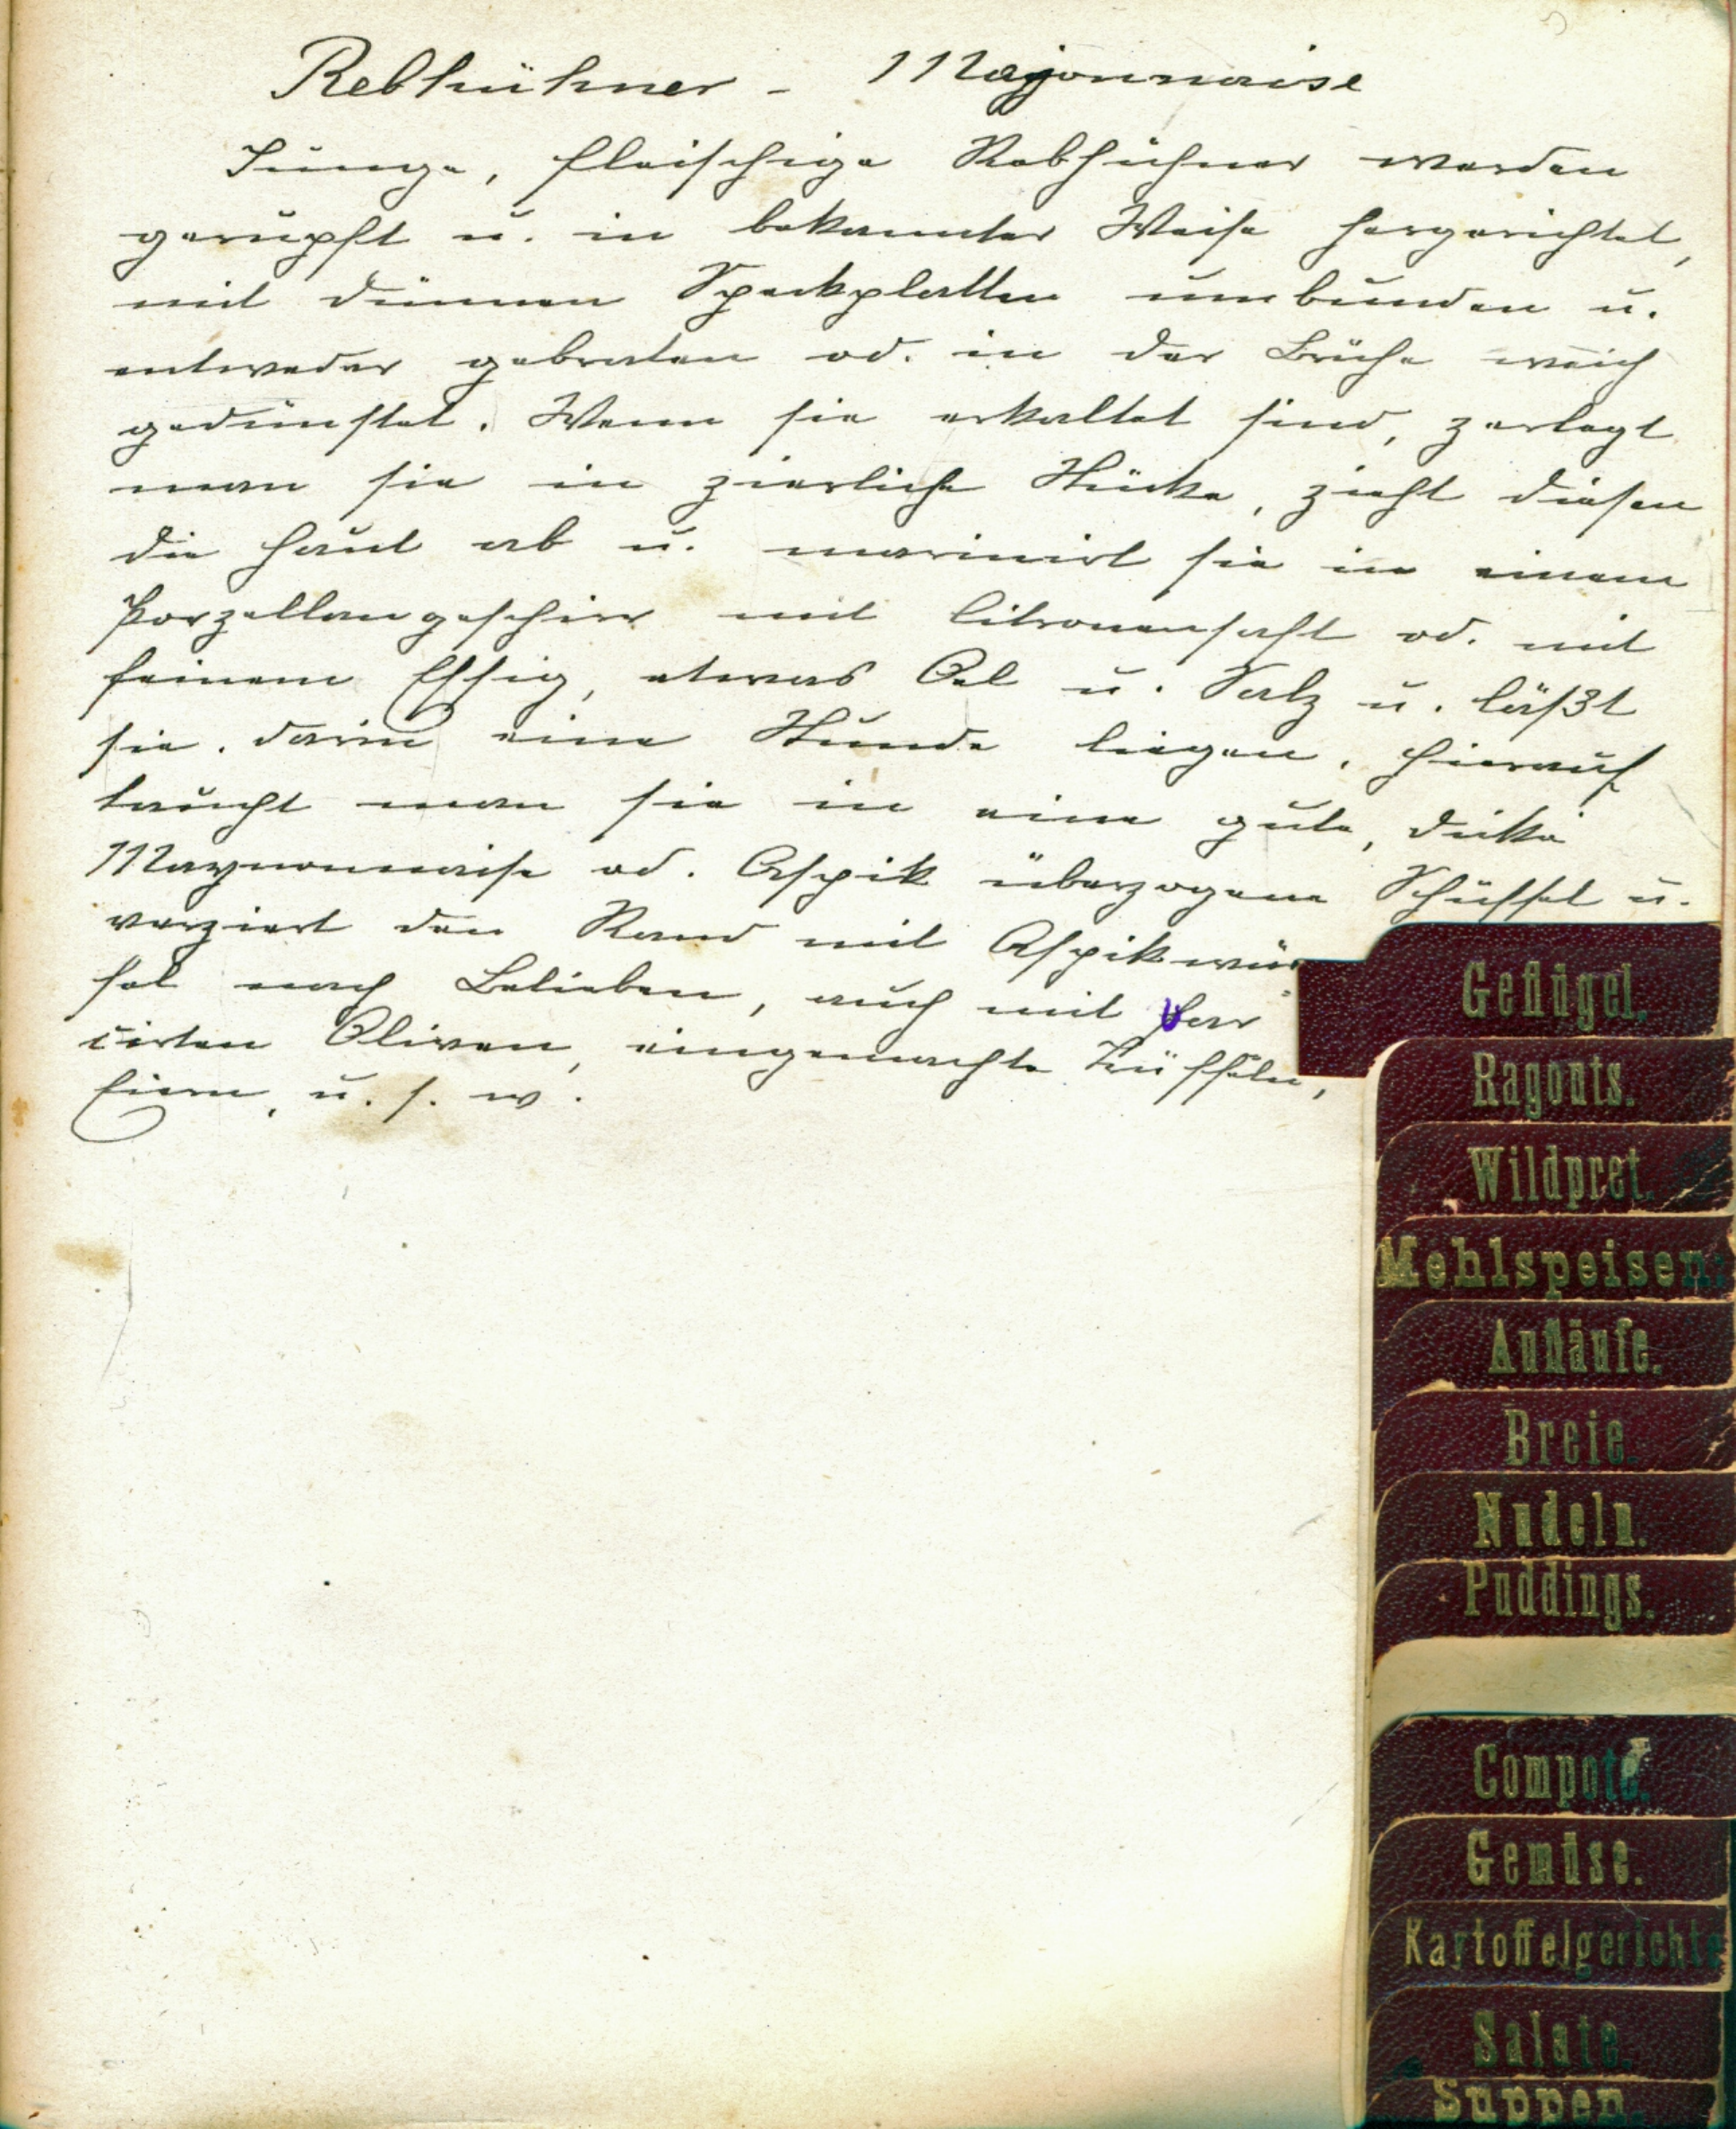 Rebhühner - Majonnaise
Junge, fleischige Rebhühner werden
gerupft u. in bekannter Weise hergerichtet,
mit dünnen Speckplatten umbunden u.
entweder gebraten od. in der Brühe weich
gedünstet. Wenn sie erkaltet sind, zerlegt
man sie in zierliche Stücke, zieht diesen
die Haut ab u. marinirt sie in einem
Porzellangeschirr mit Citronensaft od. mit
feinem Essig, etwas Oel u. Salz u. läßt
sie darin eine Stunde liegen. Hierauf
taucht man sie in eine gute, dicke
Maynonnaise od. Aspik überzogene Schüssel u.
verziert den Rand mit Aspikwür
fel nach Belieben, auch mit far
cirten Oliven, eingemachte Trüffeln,
Eiern, u. s. w.
Geflügel.
Ragouts.
Wildpret.
Mehlspeisen:
Aufläufe.
Breie.
Nudeln.
Puddings.
Compote.
Gemüse.
Kartoffelgerichte
Salate.
Suppen.